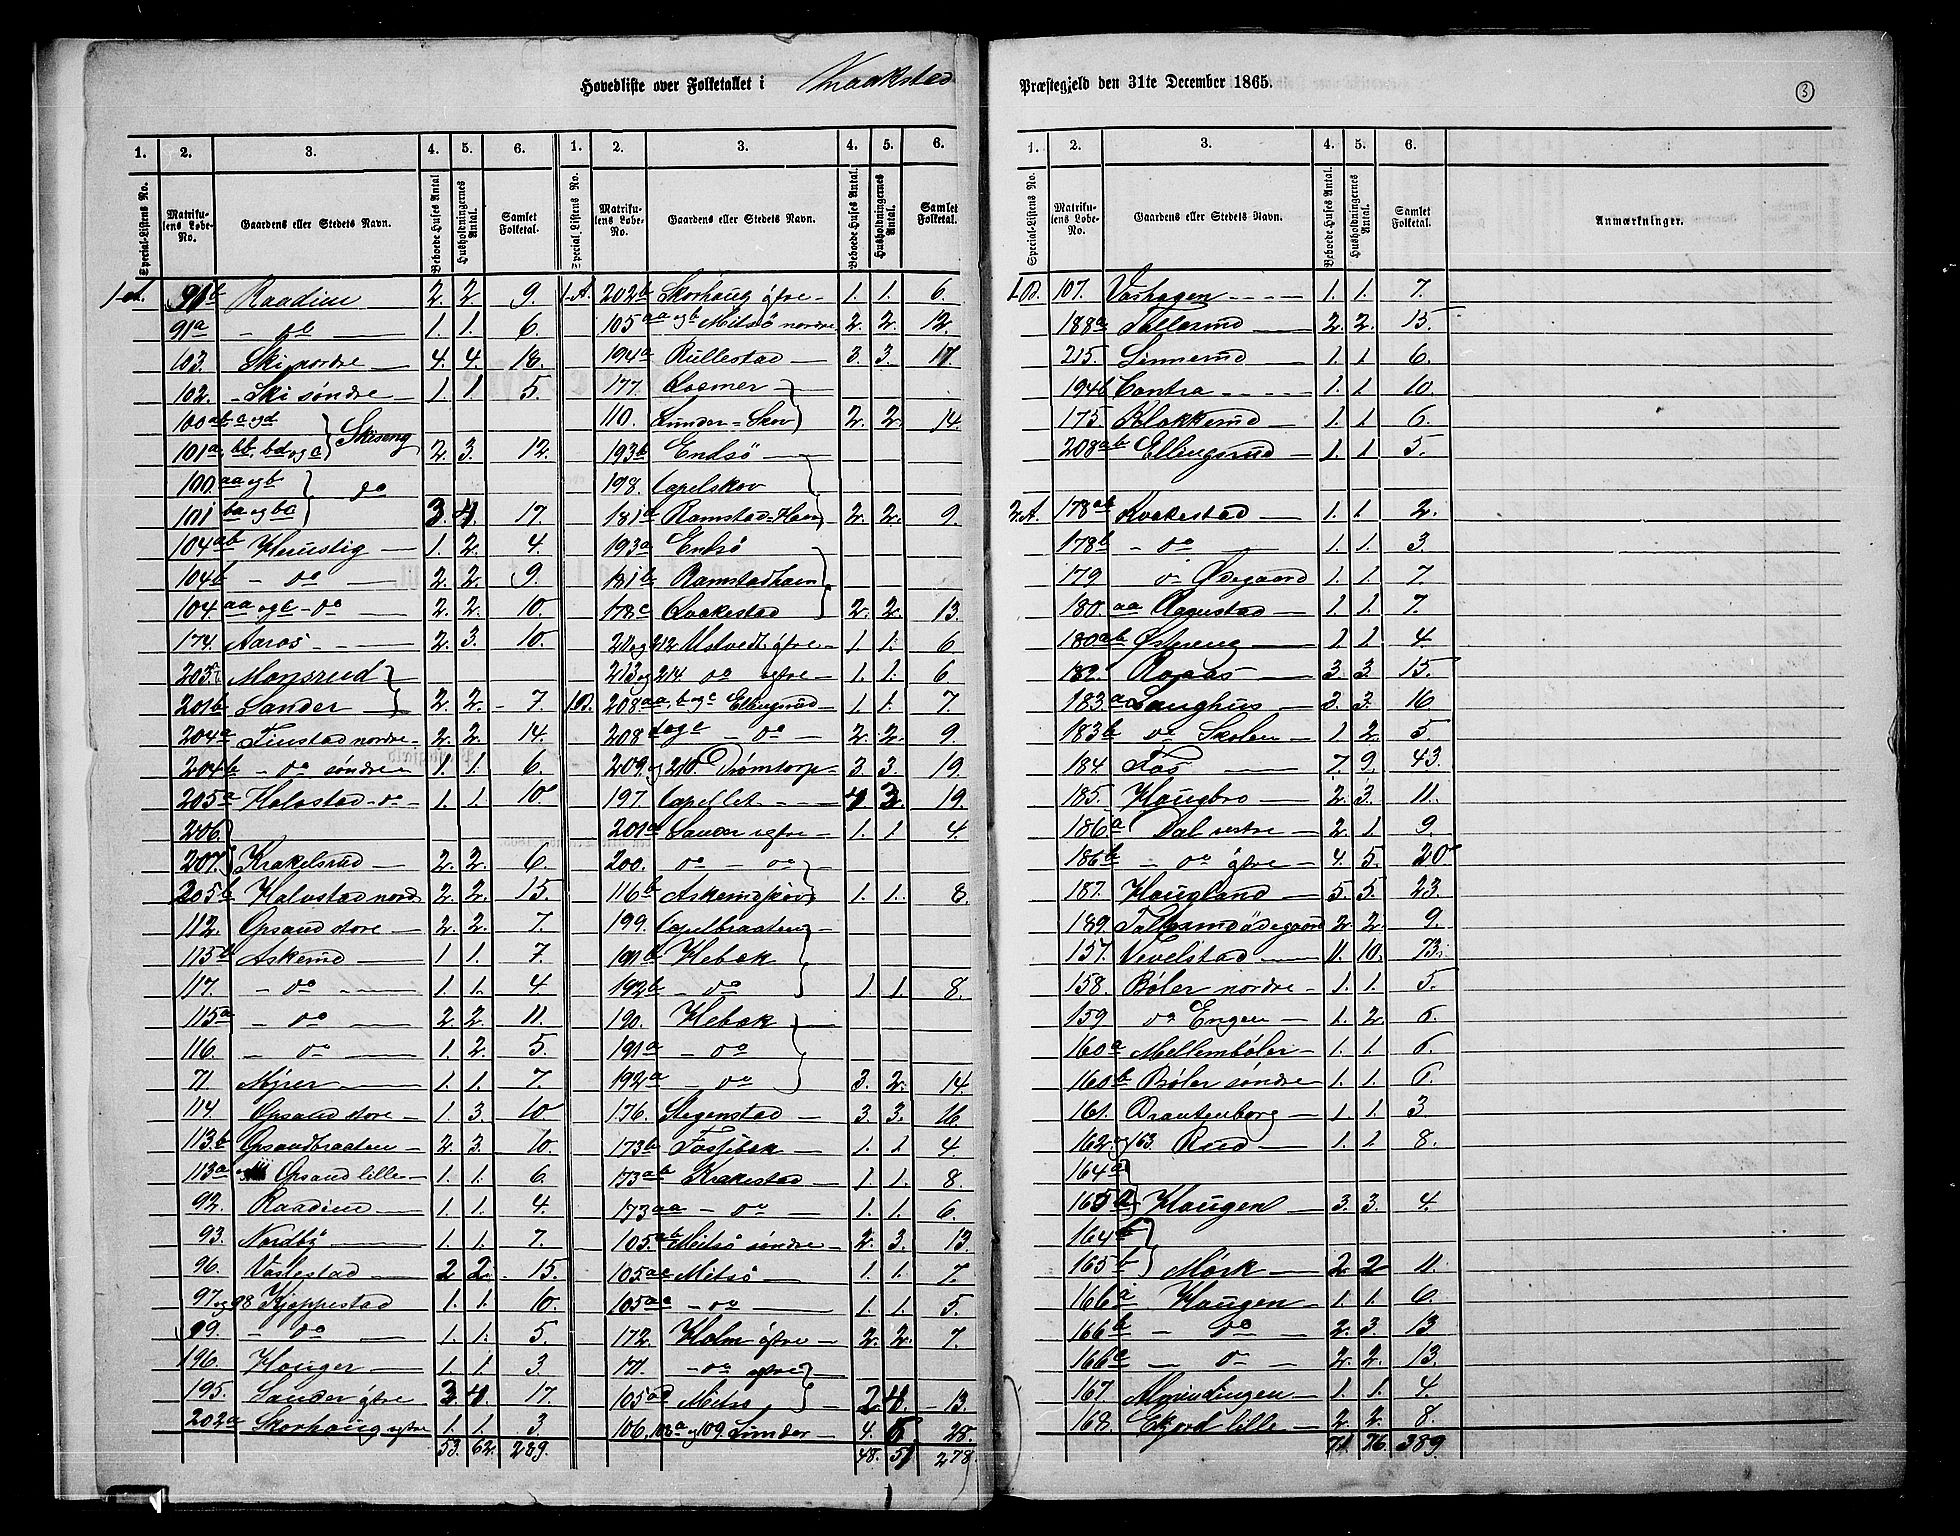 Hovedliste over Folketallet i Kraakstad Præstegjeld den 31te December 1865.
3
1. 2. 3. 4. 5. 6. 1. 2. 3. 4. 5. 6.
Special-Listens No. Matrikulens Løbe-No. Gaardens eller Stedets Navn. Beboede Huses Antal Husholdningernes Antal. Samlet Folketal. Special Listens No. Matrikulens Løbe-No. Gaardens eller Stedets Navn. Beboede Huses Antal. Husholdningernes Antal. Samlet Folketal.
1.A. 91b Raadim 2. 2 9.
91a - do 1. 1. 6.
103. Ski nordre 4. 4. 18.
102. - Ski søndre 1 1 5.
100 ab- c og d
101a, bb, bd og e } Skiseng 2. 3. 12.
100. aa og b
101 ba og bc } do 3. 4. 17.
104ab Haustig 1. 2. 4.
104b - do 2. 2. 9.
104. aa og c - do 2. 2. 10.
174. Aaros 2. 3. 10.
203. Monsrud }
201b Sander 2. 2. 7
204a Finstad nordre 2. 2. 14.
204b - do søndre 1. 1. 6.
205a Holostad - do 1. 1. 10
206.
207. Krakelsrud 2. 2. 6.
205b Holvstad nord 2. 2. 15.
112. Opsand store 2. 2. 7.
115b Askerud 1 1 7.
117. - do 1. 1. 4
115a - do 2. 2. 11.
116. - do 1. 2. 5.
71 Myrer 1. 1. 7.
114. Opsand store 1. 3. 10
113b Opsandbraaten 2. 3. 10.
113a Opsand lille 1. 1. 6.
92. Raadim 1. 1. 4.
93. Nordby 1. 1. 7.
96. Vastestad 2 2. 15.
97 og 98 Kjeppestad 1. 1. 10.
99. - do 1. 1. 5.
196. Hauger 1. 1. 3.
195. Sander øfre 3 4. 17.
202a Skorhaug nefre 1. 1. 3
53. 62. 289.
1.A. 202b Skorhaug øfre 1. 1. 6.
105 aa og b Mitsø nordre 2. 2. 12.
194a Rullestad 3. 3. 17.
177. Losmer }
110. Lunder-Skov 2. 2. 14.
193b Endsø
198. Capelskov
181a Ramstad-Haven 2. 2. 9.
193a Endsø
181b Ramstadhaven
178c Qvakestad 2. 2. 13.
211 og 212 Ustvedt øfre 1. 1. 6
213 og 214 do nefre 1. 1. 6
1.B. 208aa, b og c Ellingsrud 1. 1. 7.
208 - do 2. 2. 9.
209. og 210. Drømtorp 3. 3. 19.
197 Capellet 4 3 19.
201a Sander nefre 1. 1. 4.
200. do - do
116b Askerudskov 1. 1. 8.
199. Capelbraaten
191b Hebæk
192b - do 1. 1. 8.
190. Hebæk
191a - do
192a - do 3. 2. 14.
176. Stegenstad 3. 3. 16.
173b Fosbæk 1. 1 4.
173ab Krakestad 1. 1 8.
173aa - do 1. 1 6.
105.ab Mitsø søndre 2. 3. 13.
105ac Mitsø 1. 1. 7.
105ac - do 1. 1. 5.
172. Holm øfre 2. 2. 7.
171. - do nefre
105ad Mitsø 2. 4. 13.
106, 108a og 109. Lunder 4. 5 28.
48. 51 278.
1. 2. 3. 4. 5. 6.
Special-Listens No. Matrikulens Løbe-No. Gaardens eller Stedets Navn. Beboede Huses Antal. Husholdningernes Antal. Samlet Folketal. Anmærkninger.
1.B. 107. Vashagen 1. 1. 7.
188a Tollerud 2. 2. 15.
215. Linnerud 1. 1 6.
194b Contra 1. 1 10.
175. Blokkerud 1. 1 6.
208ab Ellingsrud 1. 1 5.
2.A. 178ab Kvakestad 1. 1 2.
178b - do 1. 1. 3.
179 do Ødegaard 1. 1. 7
180. aa Ragustad 1. 1. 7.
180ab Østreng 1. 1 4.
182. Roaas 3. 3. 15.
183a Langhus 3. 3. 16
183b do Skolen 1 2 5.
184. Fos 7. 9. 43.
185. Haugbro 2. 3. 11.
186a Dal vestre 2. 1. 9.
186b - do øfre 4. 5. 20
187. Haugland 5. 5. 23.
189. Tollerudødegaard 2. 2. 9.
157. Vevelstad 11. 10. 73.
158. Bøler nordre 1. 1. 5.
159 do Engen 1. 2. 6.
160a Mellembøler 1. 1. 6.
160b Bøler søndre 1. 1. 6.
161. Drautenborg 1. 1. 3
162. og 163. Rud 1. 1. 8.
164a
165a Haugen 3. 3. 4.
164b
165b Mørk 2 2 11.
166a Haugen 1. 1. 6.
166b - do 2. 3. 13
166c - do 2. 2. 13.
167. Almindingen 1. 1. 4.
168. Ekjord lille 2. 2. 8.
71. 76. 389.